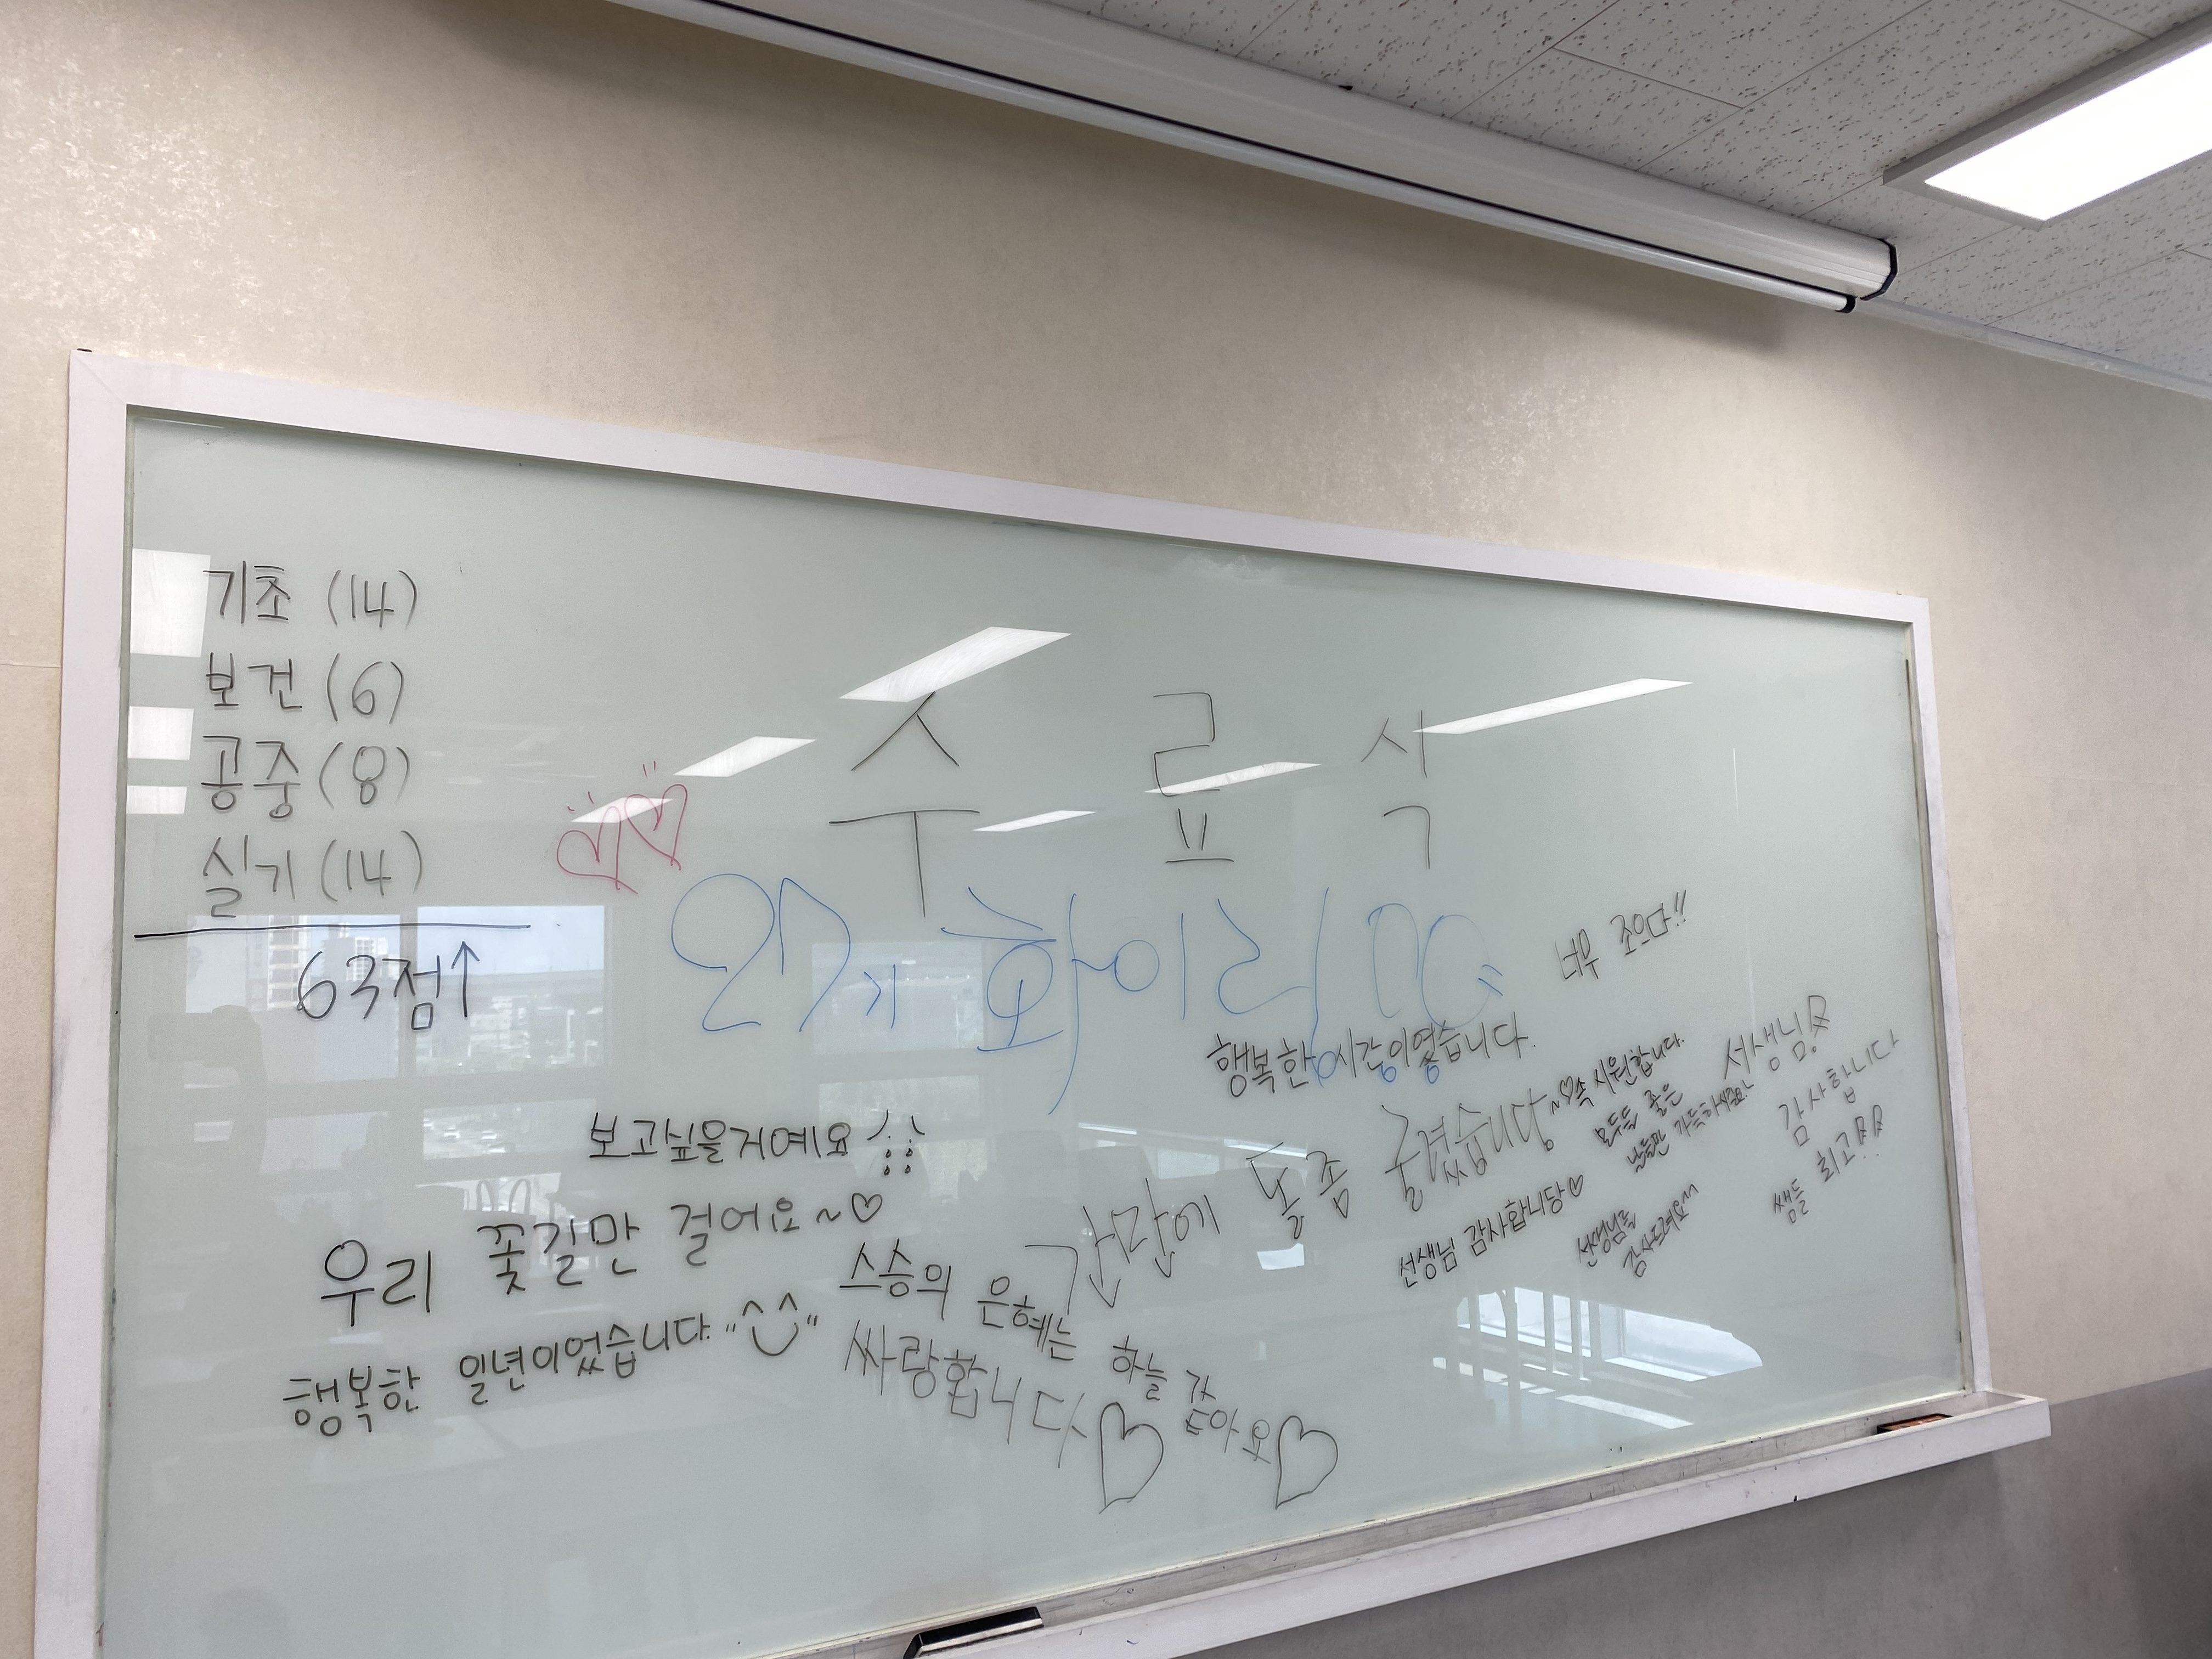 기초 (14)
보건 (6)
공중 (8)
실기 (14)
63점↑
수료식
27기 화이리
너무 조으다!!
행복한 시간이였습니다.
속 시원합니다.
모두들 좋은
날들만 가득하세요!~
감사합니다
쌤들 최고
간만에 돈좀 굴렸습니당~♡
선생님 감사합니당♡
선생님들
감사드려요~
보고싶을거예요
우리 꽃길만 걸어요~♡
행복한 일년이었습니다.
스승의 은혜는 하늘 같아요♡
싸랑합니다♡